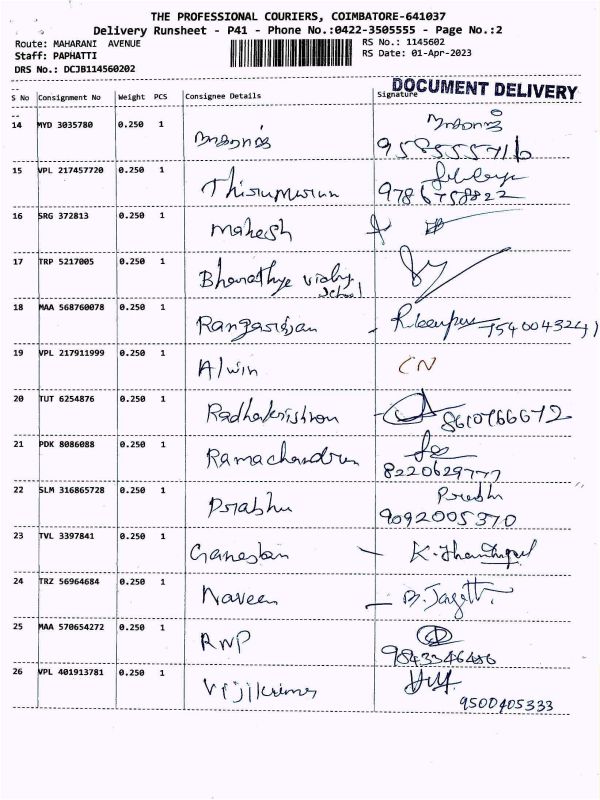 THE PROFESSIONAL COURIERS, COIMBATORE-641037
Delivery Runsheet - P41 - Phone No.:0422-3505555 - Page No.:2
Route: MAHARANI AVENUE RS No.: 1145602
Staff: PAPHATTI RS Date: 01-Apr-2023
DRS No.: DCJB114560202
DOCUMENT DELIVERY
S No Consignment No Weight PCS Consignee Details Signature
14 MYD 3035780 0.250 1
9585555716
15 VPL 217457720 0.250 1 Thirumurun
9786758822
16 SRG 372813 0.250 1 Mahesh
17 TRP 5217005 0.250 1 Bharathye vidhy
School
18 MAA 568760078 0.250 1 Rangarajan 7540043241
19 VPL 217911999 0.250 1 Alwin CN
20 TUT 6254876 0.250 1 Radhakrishnan 8610766672
21 PDK 8086088 0.250 1 Ramachandran
8220629777
22 SLM 316865728 0.250 1 Prabhu Prabhu
9092005370
23 TVL 3397841 0.250 1 Ganeshan
24 TRZ 56964684 0.250 1 Naveen
25 MAA 570654272 0.250 1 RNP
9843346486
26 VPL 401913781 0.250 1
9500405333